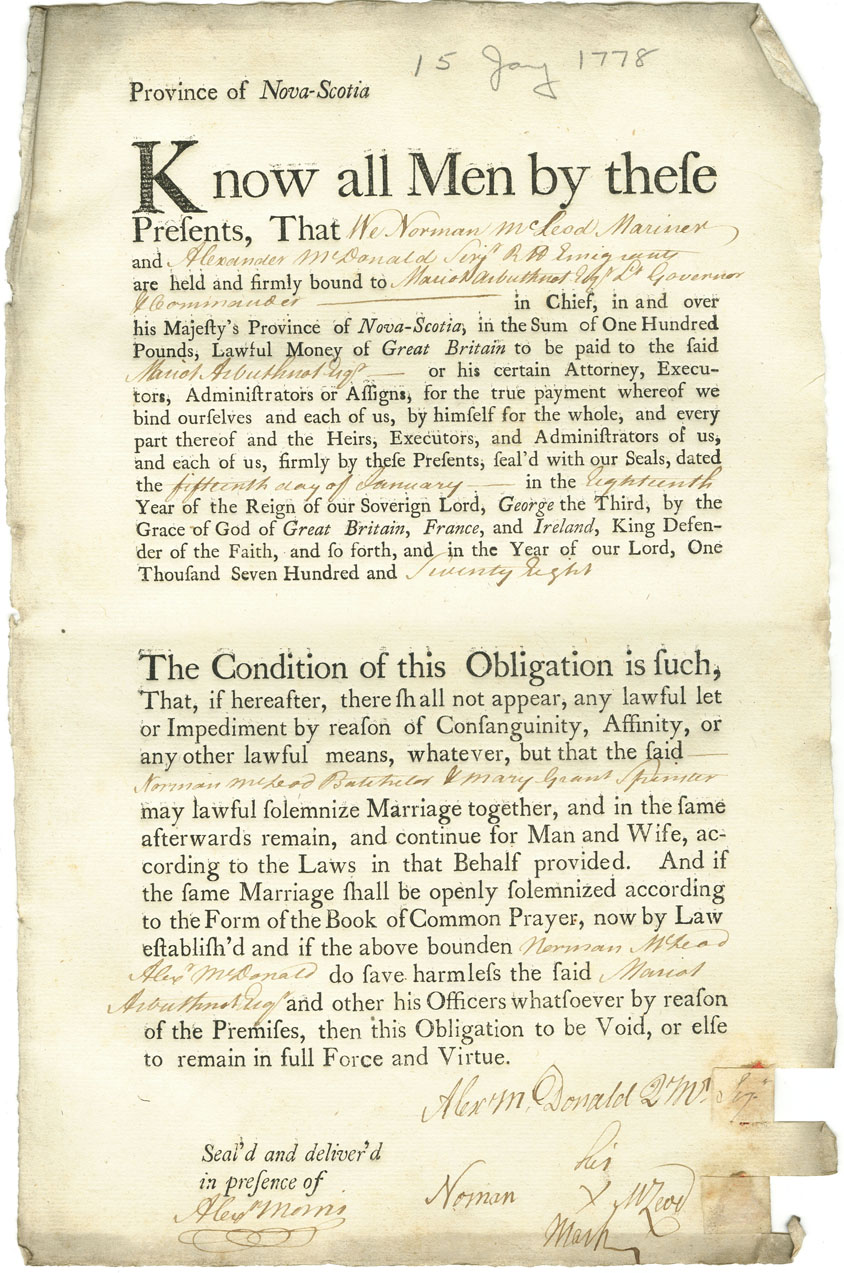 15 Jany 1778
Province of Nova-Scotia
Know all Men by theſe
Preſents, That We Norman McLeod Mariner
and Alexander McDonald Serjt R H Emigrants
are held and firmly bound to Mariot Arbuthnot Esqr Lt Governor
& Commander in Chief, in and over
his Majeſty's Province of Nova-Scotia, in the Sum of One Hundred
Pounds, Lawful Money of Great Britain to be paid to the ſaid
Mariot Arbuthnot Esqr — or his certain Attorney, Execu-
tors, Adminiſtrators or Aſſigns, for the true payment whereof we
bind ourſelves and each of us, by himſelf for the whole, and every
part thereof and the Heirs, Executors, and Adminiſtrators of us,
and each of us, firmly by theſe Preſents, ſeal'd with our Seals, dated
the fifteenth day of January — in the Eighteenth
Year of the Reign of our Soverign Lord, George the Third, by the
Grace of God of Great Britain, France, and Ireland, King Defen-
der of the Faith, and ſo forth, and in the Year of our Lord, One
Thouſand Seven Hundred and Seventy Eight
The Condition of this Obligation is ſuch,
That, if hereafter, there ſhall not appear, any lawful let
or Impediment by reaſon of Conſanguinity, Affinity, or
any other lawful means, whatever, but that the ſaid —
Norman McLeod Batchelor & Mary Grant Spinster
may lawful ſolemnize Marriage together, and in the ſame
afterwards remain, and continue for Man and Wife, ac-
cording to the Laws in that Behalf provided. And if
the ſame Marriage ſhall be openly ſolemnized according
to the Form of the Book of Common Prayer, now by Law
eſtabliſh'd and if the above bounden Norman McLeod
Alexr McDonald do ſave harmleſs the ſaid Mariot
Arbuthnot Esqr and other his Officers whatſoever by reaſon
of the Premiſes, then this Obligation to be Void, or elſe
to remain in full Force and Virtue.
Alexr McDonald Qr Mr Serjt
Seal'd and deliver'd
in preſence of
Alexr Morris
his
Norman X McLeod
Mark